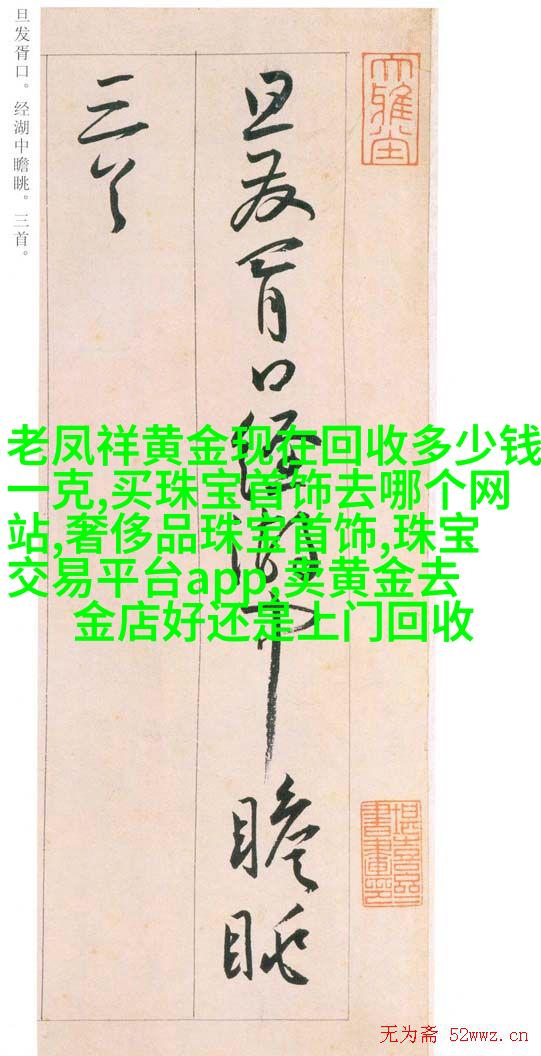 旦发胥口。经湖中瞻眺。三首。
旦发胥口经湖中瞻眺
三首
老凤祥黄金现在回收多少钱
一克,买珠宝首饰去哪个网
站,奢侈品珠宝首饰,珠宝
交易平台app,卖黄金去
金店好还是上门回收
大雅堂
无为斋 52wwz.cn